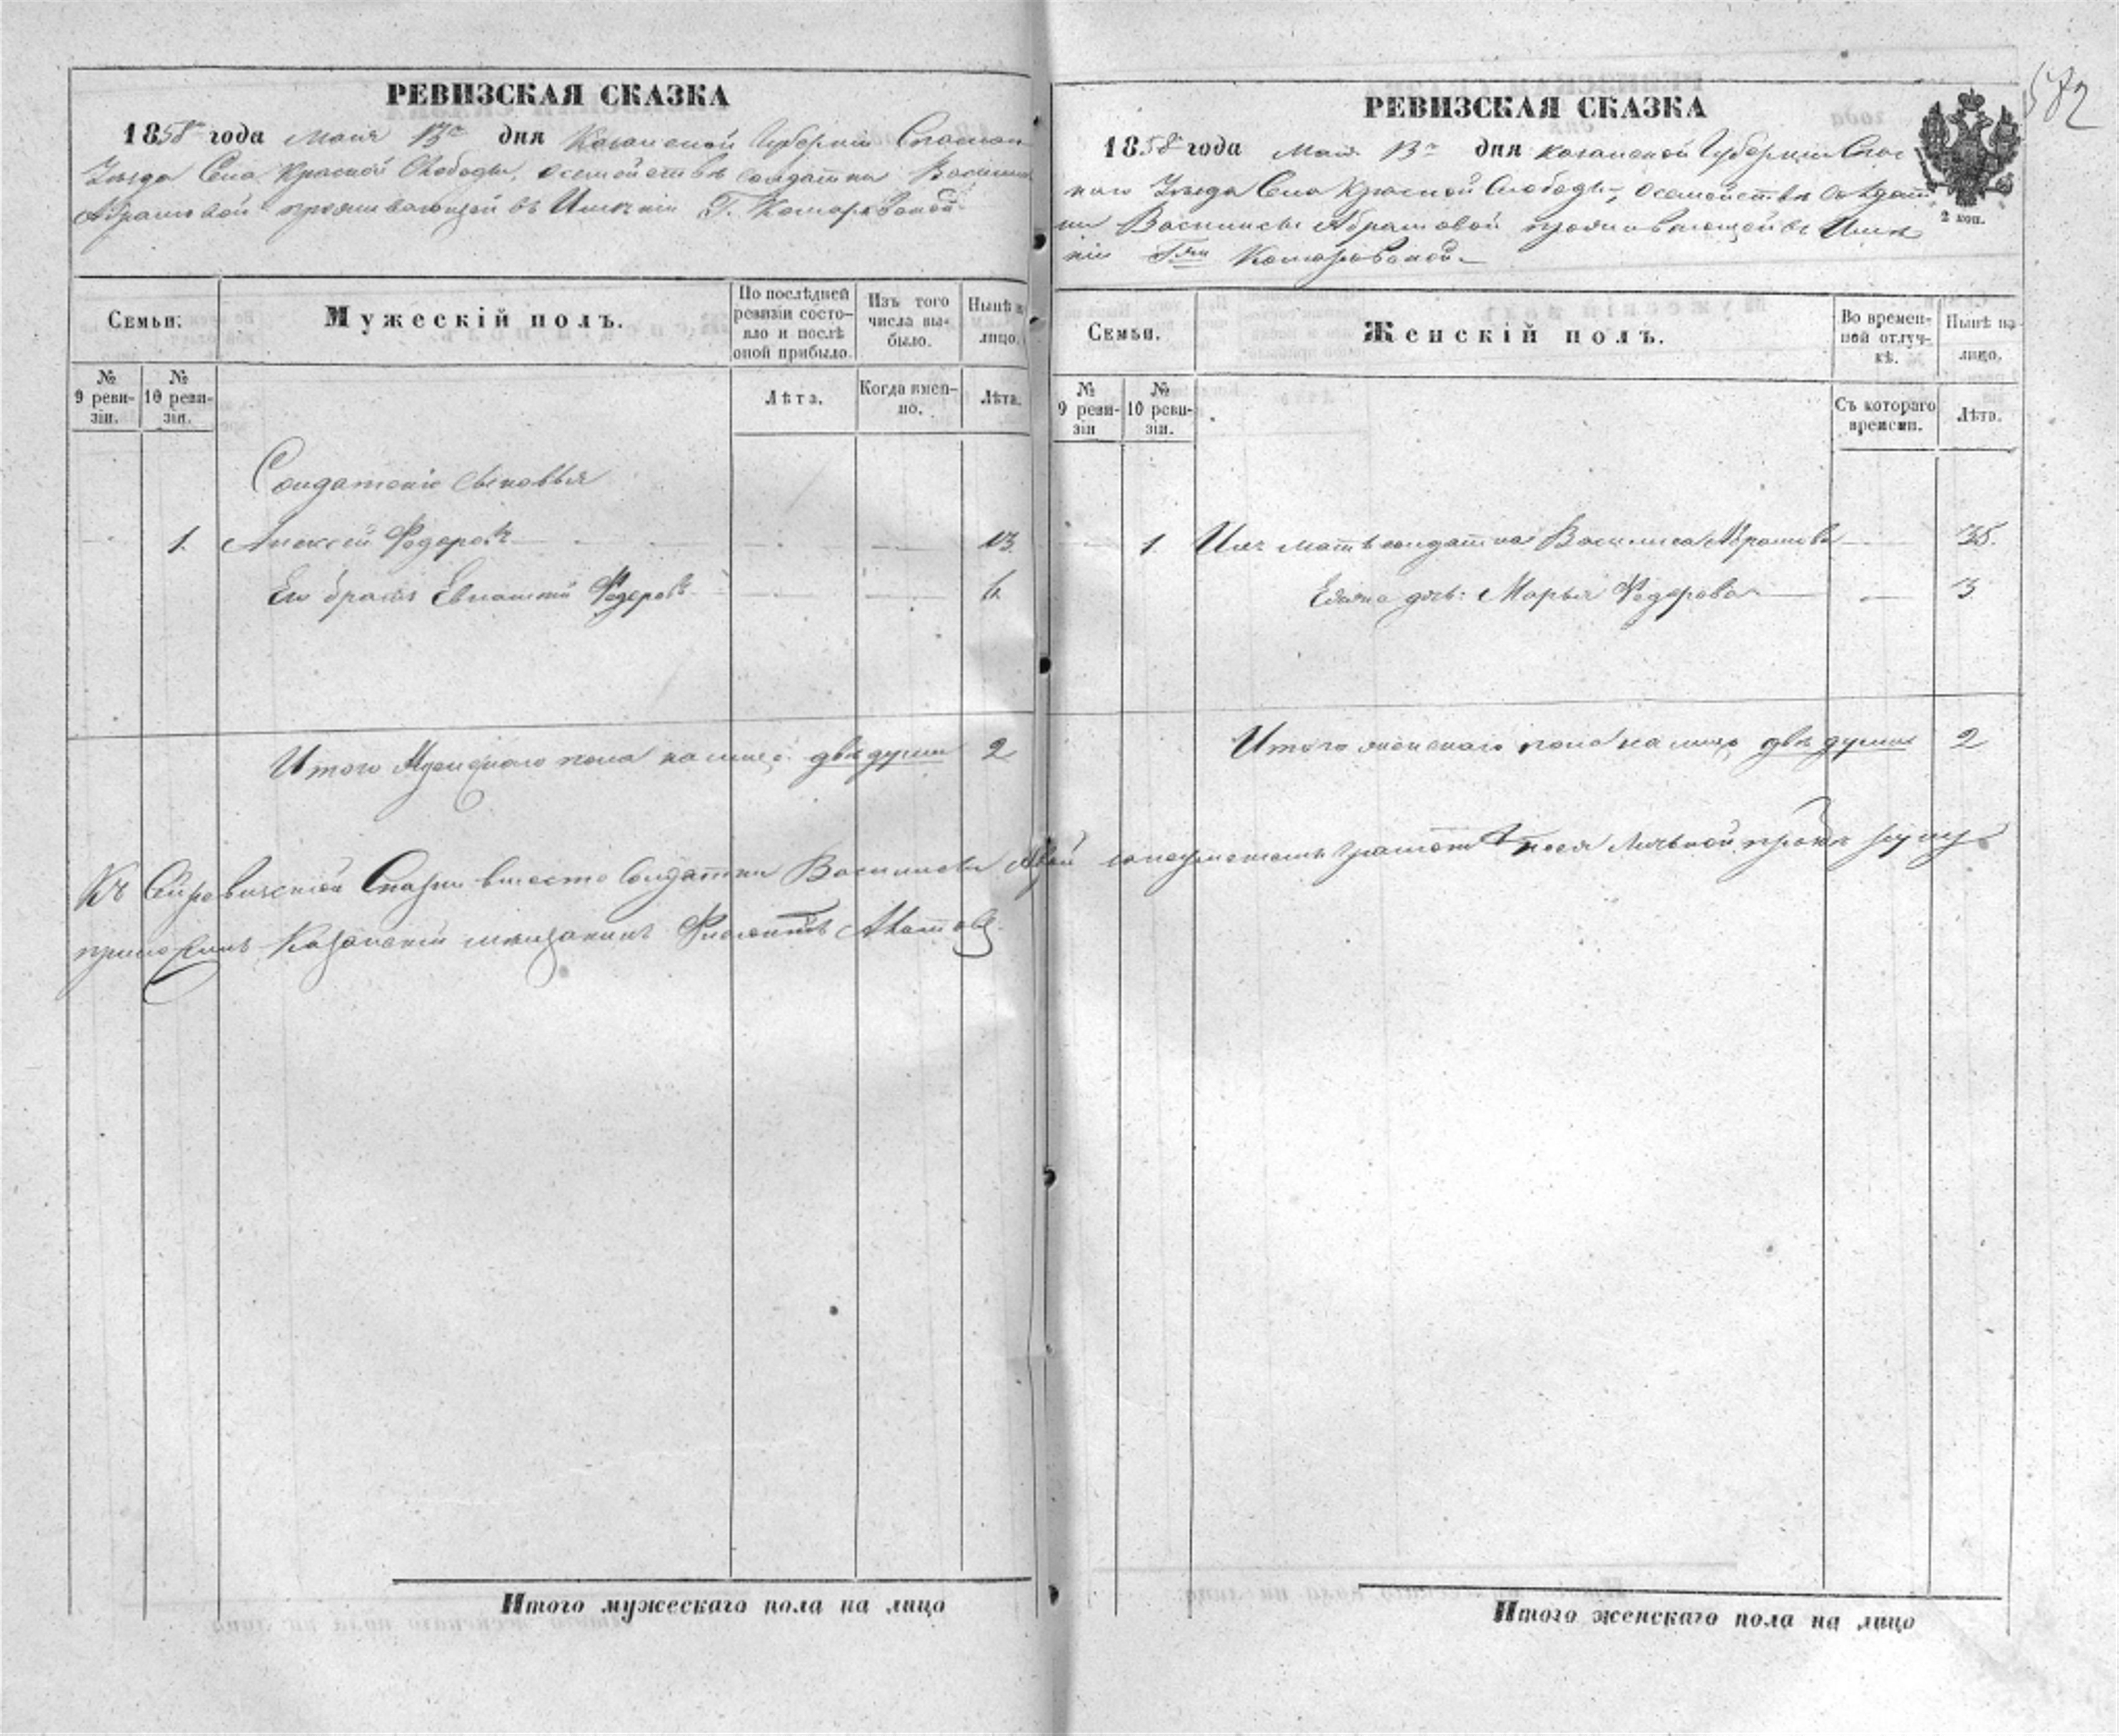 РЕВИЗСКАЯ СКАЗКА
1858 года Мая 13го дня Казанской Губернии Спаскаго
Уезда Села Красной Слободы, осемействе солдатки Василисы
Абрамовой проживающей въ Имении Г. Комаровской
Семьи.
Мужескій полъ.
По послѣдней ревизіи состояло и послѣ оной прибыло.
Изъ того числа выбыло.
Нынѣ на лицо.
№ 9 ревизіи.
№ 10 ревизіи.
Лѣта.
Когда именно.
Лѣта.
Солдатскіе сыновья
1. Алексей Федоровъ 13.
Его братъ Евлампий Федоровъ 6.
Итого Мужескаго пола на лицо двѣ души 2
Къ Сей ревизской Сказки вместо Солдатки Василисы
приложилъ Казанский мещанинъ
Итого мужескаго пола на лицо
582
РЕВИЗСКАЯ СКАЗКА
2 коп.
1858 года Мая 13го дня Казанской Губернии Спас
каго Уезда Села Красной Слободы, осемействе Солдат
ки Василисы Абрамовой проживающей въ Име
ніи Гжи Комаровской
Семьи.
Женскій полъ.
Во временной отлучкѣ.
Нынѣ на лицо.
№ 9 ревизіи
№ 10 ревизіи.
Съ котораго времени.
Лѣта.
1. Ихъ мать солдатка Василиса Абрамова 35.
дочь Марья Федорова 3
Итого женскаго пола на лицо двѣ души 2
руку
Итого женскаго пола на лицо